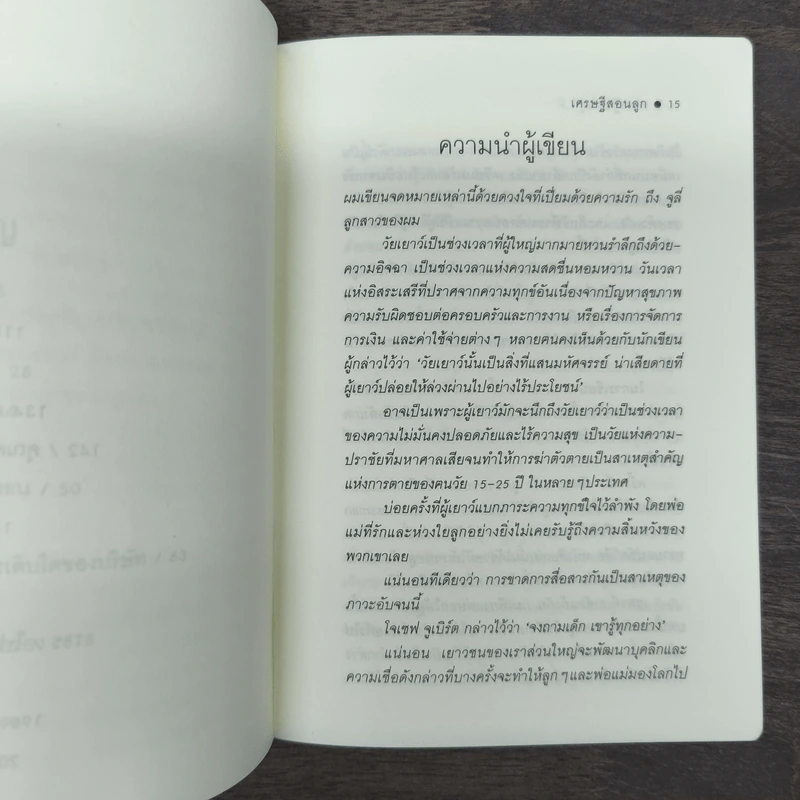 เศรษฐีสอนลูก ● 15
ความนำผู้เขียน
ผมเขียนจดหมายเหล่านี้ด้วยดวงใจที่เปี่ยมด้วยความรัก ถึง จูลี่
ลูกสาวของผม
วัยเยาว์เป็นช่วงเวลาที่ผู้ใหญ่มากมายหวนรำลึกถึงด้วย-
ความอิจฉา เป็นช่วงเวลาแห่งความสดชื่นหอมหวาน วันเวลา
แห่งอิสระเสรีที่ปราศจากความทุกข์อันเนื่องจากปัญหาสุขภาพ
ความรับผิดชอบต่อครอบครัวและการงาน หรือเรื่องการจัดการ
การเงิน และค่าใช้จ่ายต่างๆ หลายคนคงเห็นด้วยกับนักเขียน
ผู้กล่าวไว้ว่า ‘วัยเยาว์นั้นเป็นสิ่งที่แสนมหัศจรรย์ น่าเสียดายที่
ผู้เยาว์ปล่อยให้ล่วงผ่านไปอย่างไร้ประโยชน์’
อาจเป็นเพราะผู้เยาว์มักจะนึกถึงวัยเยาว์ว่าเป็นช่วงเวลา
ของความไม่มั่นคงปลอดภัยและไร้ความสุข เป็นวัยแห่งความ-
ปราชัยที่มหาศาลเสียจนทำให้การฆ่าตัวตายเป็นสาเหตุสำคัญ
แห่งการตายของคนวัย 15-25 ปี ในหลายๆประเทศ
บ่อยครั้งที่ผู้เยาว์แบกภาระความทุกข์ใจไว้ลำพัง โดยพ่อ
แม่ที่รักและห่วงใยลูกอย่างยิ่งไม่เคยรับรู้ถึงความสิ้นหวังของ
พวกเขาเลย
แน่นอนทีเดียวว่า การขาดการสื่อสารกันเป็นสาเหตุของ
ภาวะอับจนนี้
โจเซฟ จูเบิร์ต กล่าวไว้ว่า ‘จงถามเด็ก เขารู้ทุกอย่าง’
แน่นอน เยาวชนของเราส่วนใหญ่จะพัฒนาบุคลิกและ
ความเชื่อดังกล่าวที่บางครั้งจะทำให้ลูกๆและพ่อแม่มองโลกไป